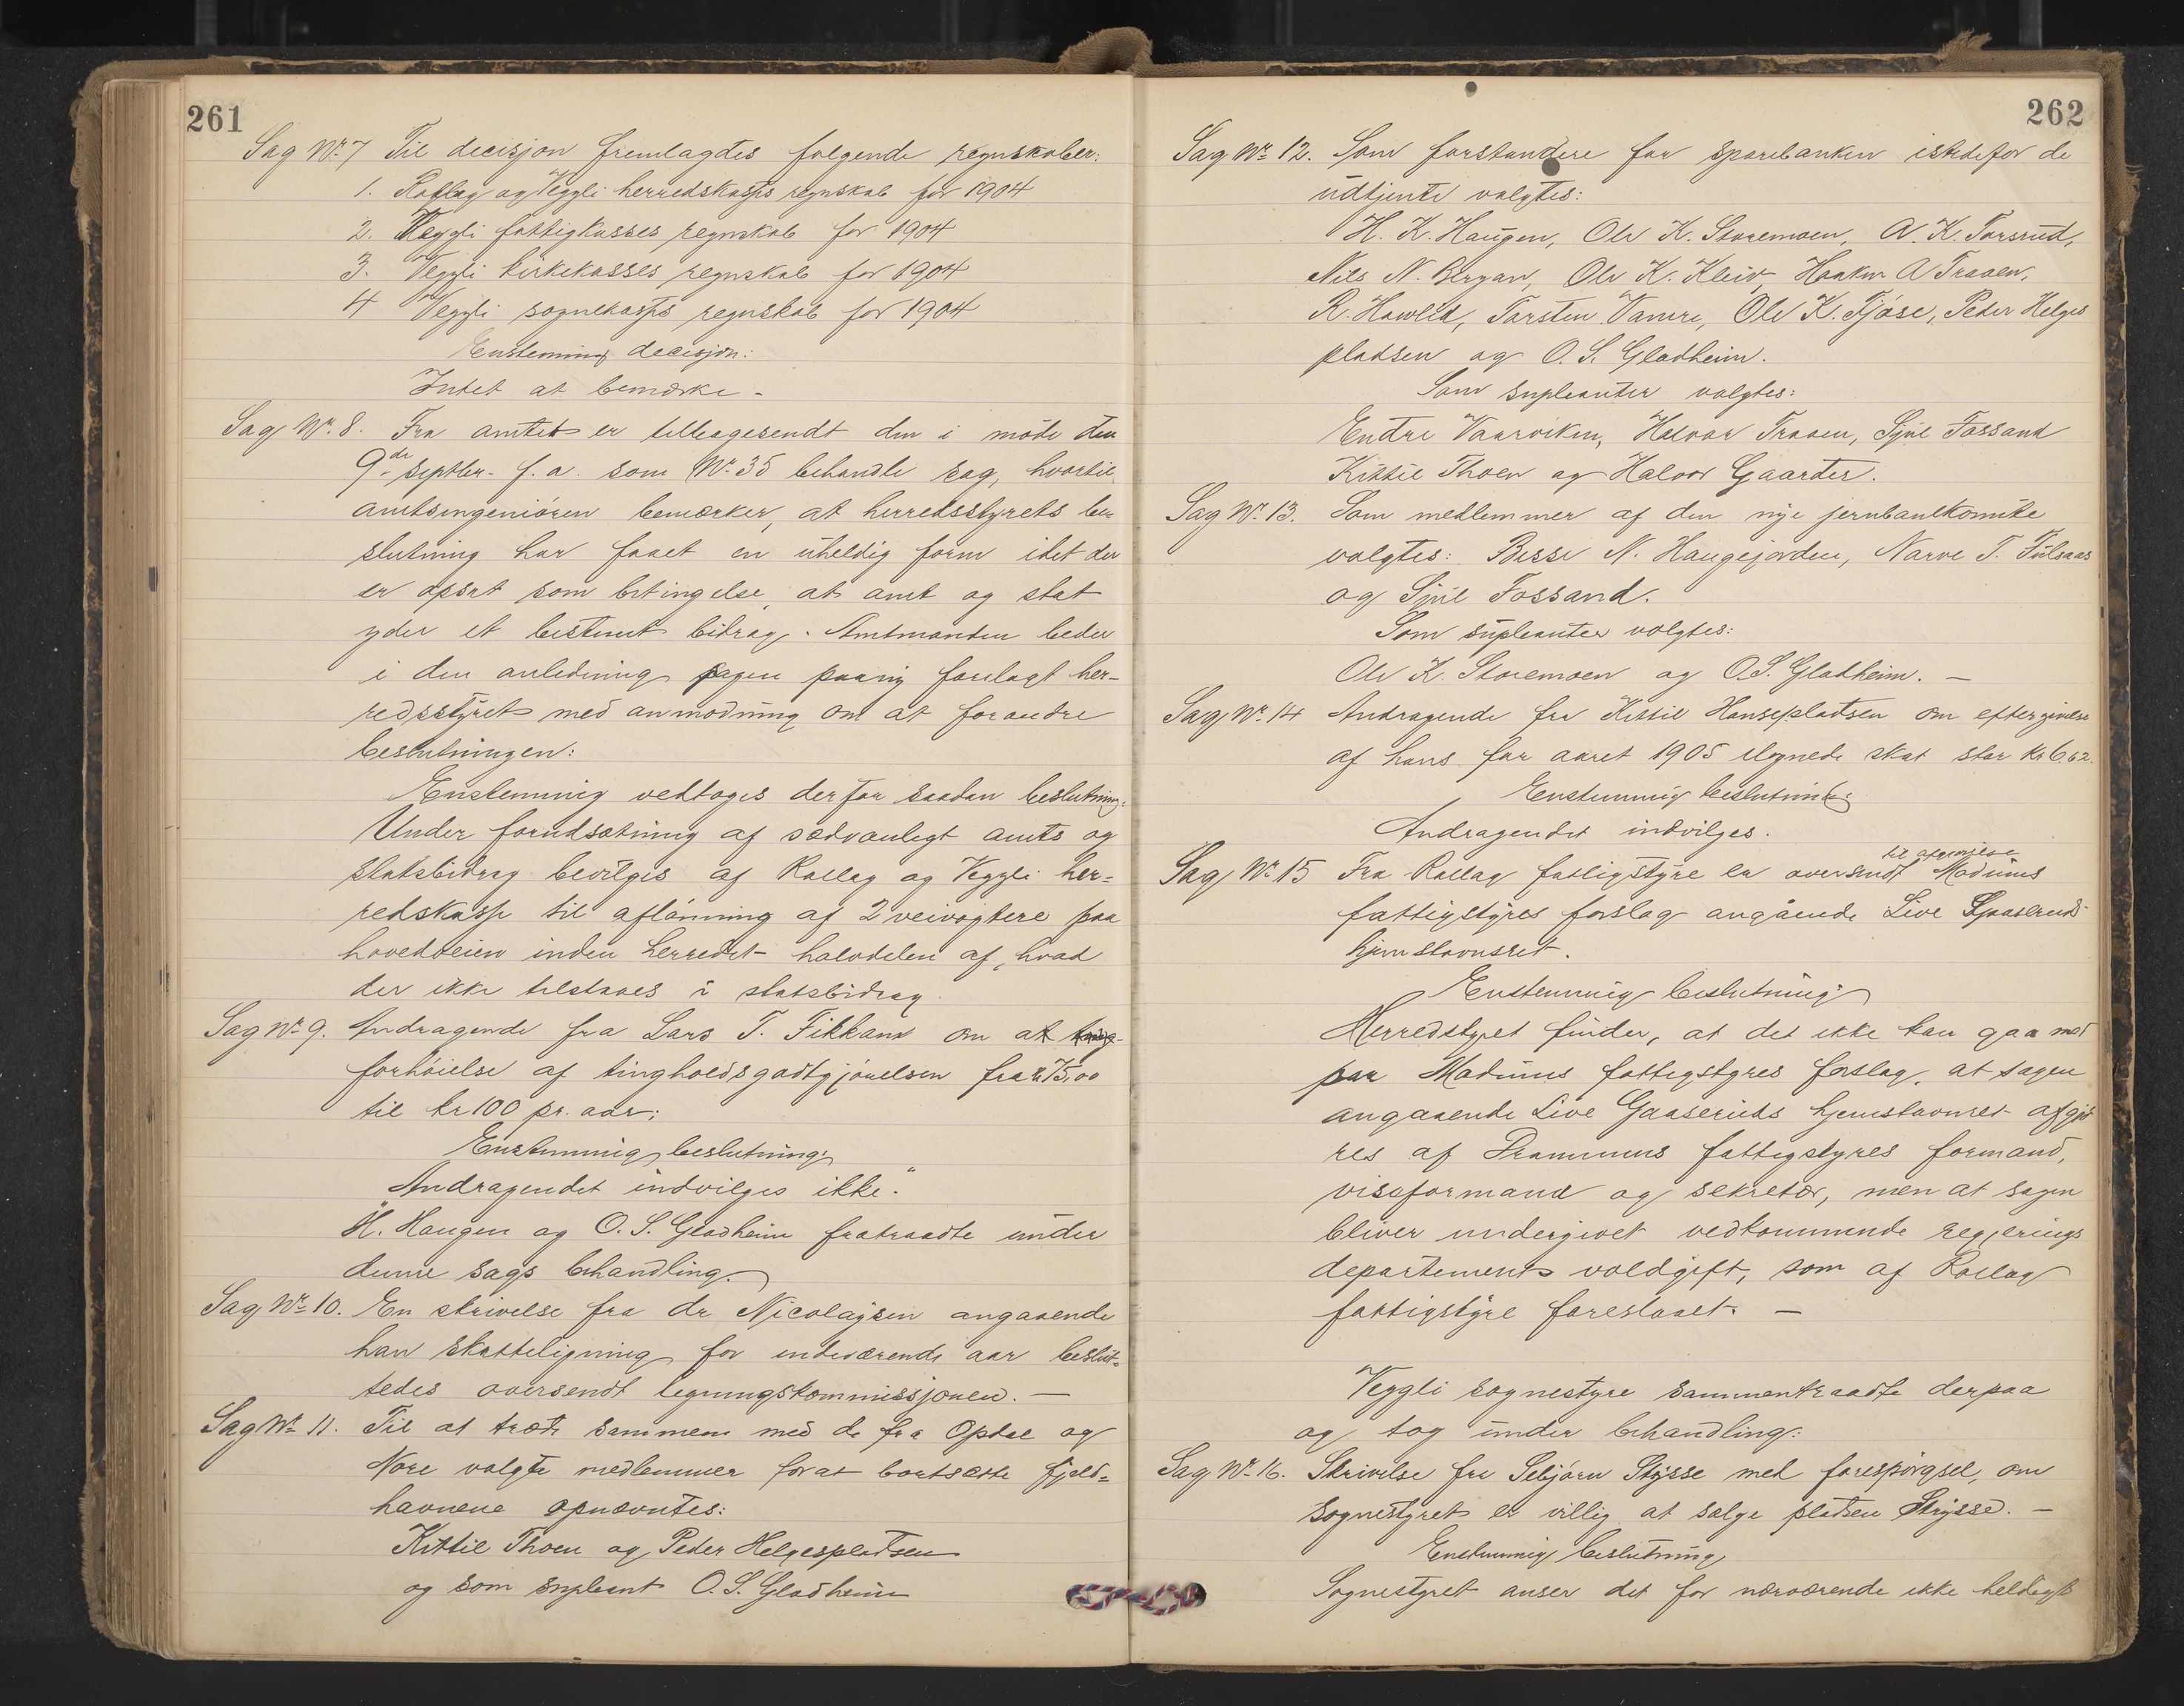 261
Sag Nr. 7 Til decisjon fremlagdes følgende regnskaber:
1. Rollag og Veggli herredskasses regnskab for 1904
2. Veggli fattigkasses regnskab for 1904
3. Veggli kirkekasses regnskab for 1904
4 Veggli sognekasses regnskab for 1904
Enstemmig decisjon:
Intet at bemærke -
Sag Nr. 8. Fra amtet er tilbagesendt den i møde den
9de septbr. f.a. som Nr. 35 behandle sag, hvortil
amtsingeniøren bemærker, at herredsstyrets be-
slutning har faaet en uheldig form idet der
er opsat som betingelse, at amt og stat
yder et bestemt bidrag. Amtmanden beder
i den anledning sagen paany forelagt her-
redsstyret med anmodning om at forandre
beslutningen:
Enstemmig vedtoges derfor saadan beslutning:
Under forudsætning af sædvanligt amts og
statsbidrag bevilges af Rollag og Veggli her-
redskasse til aflønning af 2 veivogtere paa
hovedveien inden herredet halvdelen af, hvad
der ikke tilstaaes i statsbidrag.
Sag Nr. 9. Andragende fra Lars T. Fikkan om at
forhøielse af tingholdsgodtgjørelsen fra kr 75,00
til kr 100 pr. aar:
Enstemmig beslutning:
"Andragendet indvilges ikke."
H. Haugen og O. S. Gladheim fratraadte under
denne sags behandling.
Sag Nr. 10. En skrivelse fra dr Nicolaysen angaaende
han skatteligning for indeværende aar beslut-
tedes oversendt legningskommissjonen. —
Sag Nr. 11. Til at træde sammen med de fra Opdal og
Nore valgte medlemmer for at bortsætte fjeld-
havnene opnævntes:
Kittil Thoen og Peder Helgespladsen
og som supleant O. S. Gladheim
262
Sag Nr. 12. Som forstandere for sparebanken istedefor de
udtjente valgtes:
H. K. Haugen, Ole K. Storemoen, A. K. Torsrud,
Nils N. Bergan, Ole K. Kleiv, Haakon A Traaen,
R. Howlid, Torsten Vamre, Ole K. Fjøse, Peder Helges
pladsen og O. S. Gladheim.
Som supleanter valgtes:
Endre Vaarviken, Halvor Traaen, Sjul Fossand
Kittil Thoen og Halvor Gaarder.
Sag Nr. 13. Som medlemmer af den nye jernbanekomite
valgtes: Besse N. Haugejorden, Narve T. Fulsaas
og Sjul Fossand.
Som supleanter valgtes:
Ole K. Storemoen og O. S. Gladheim. —
Sag Nr. 14 Andragende fra Kittil Hansepladsen om eftergivelse
af hans for aaret 1905 ilignede skat stor Kr 6.62.
Enstemmig beslutning:
Andragendet indvilges.
Sag Nr. 15 Fra Rollag fattigstyre er oversendt til afgjørelse Modums
fattigstyres forslag angående Live Gaaseruds
hjemstavnsret.
Enstemmig beslutning
Herredstyret finder, at det ikke kan gaa med
paa Modums fattigstyres forslag, at sagen
angaaende Live Gaaseruds hjemstavnsret afgjø
res af Drammens fattigstyres formand,
viseformand og sekretær, men at sagen
bliver undergivet vedkommende regjerings
departements voldgift, som af Rollag
fattigstyre foreslaaet. —
Veggli sognestyre sammentraadte derpaa
og tog under behandling:
Sag Nr. 16. Skrivelse fra Stysse med forespørgsel, om
sognestyret er villig at sælge pladsen Strysse. —
Enstemmig beslutning
Sognestyret anser det for nærværende ikke heldigt